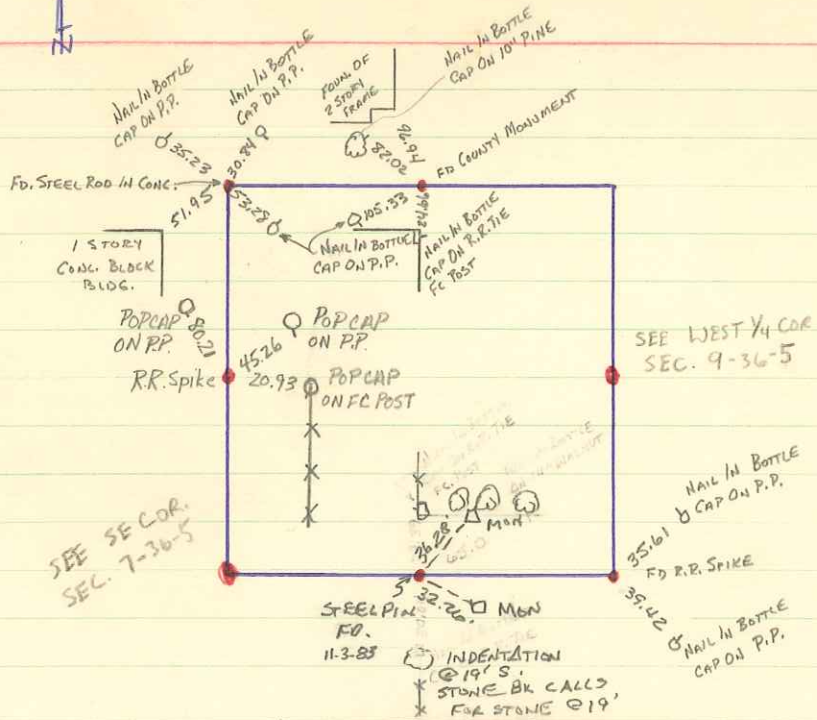 N
NAIL IN BOTTLE
CAP ON P.P.
35.23
NAIL IN BOTTLE
CAP ON P.P.
30.84
FOUN. OF
2 STORY
FRAME
NAIL IN BOTTLE
CAP ON 10" PINE
82.02
96.94
FD COUNTY MONUMENT
FD. STEEL ROD IN CONC.
51.95
53.28
105.33
NAIL IN BOTTLE
CAP ON P.P.
NAIL IN BOTTLE
CAP ON R.R. TIE
FC POST
1 STORY
CONC. BLOCK
BLDG.
POPCAP
ON P.P.
80.21
POPCAP
ON P.P.
45.26
R.R. Spike
20.93
POPCAP
ON FC POST
SEE WEST 1/4 COR
SEC. 9-36-5
F.C. POST
MON
36.28
65.0
SEE SE COR.
SEC. 7-36-5
35.61
NAIL IN BOTTLE
CAP ON P.P.
FD R.R. SPIKE
39.42
NAIL IN BOTTLE
CAP ON P.P.
STEEL PIN
FD.
11-3-83
32.26
MON
INDENTATION
@ 19' S.
STONE BK CALLS
FOR STONE @ 19'